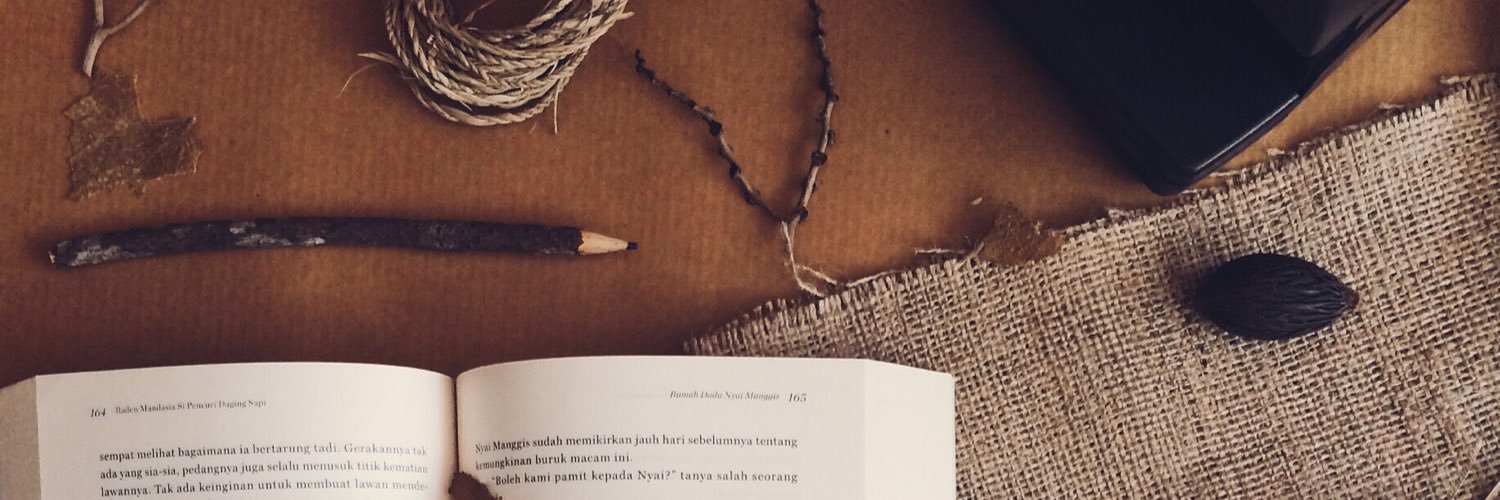 164 Raden Mandasia Si Pencuri Daging Sapi
sempat melihat bagaimana ia bertarung tadi. Gerakannya tak
ada yang sia-sia, pedangnya juga selalu menusuk titik kematian
lawannya. Tak ada keinginan untuk membuat lawan mende-
Rumah Dadu Nyai Manggis 165
Nyai Manggis sudah memikirkan jauh hari sebelumnya tentang
kemungkinan buruk macam ini.
"Boleh kami pamit kepada Nyai?" tanya salah seorang